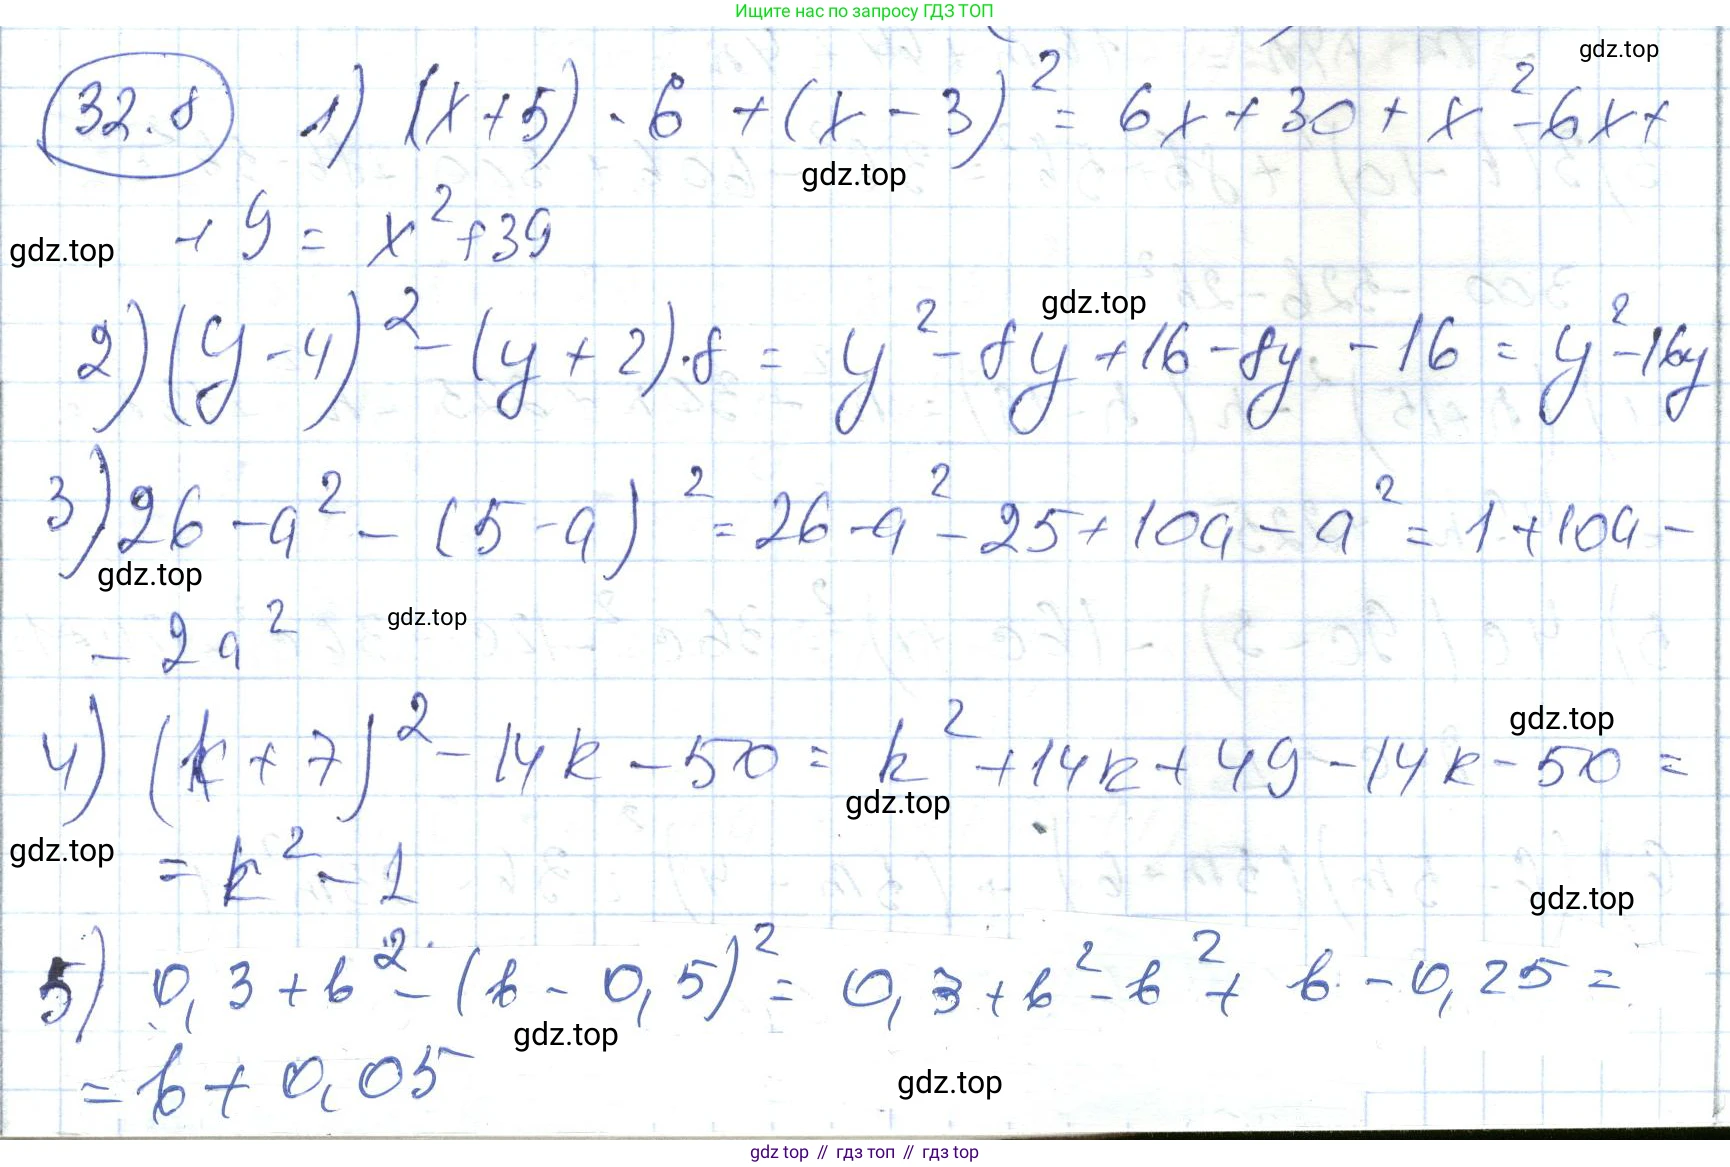 Ищите нас по запросу ГДЗ ТОП
gdz.top
32.8 1) (x+5)·6+(x-3)²=6x+30+x²-6x+
gdz.top
+9=x²+39
gdz.top
gdz.top
2)(y-4)²-(y+2)·8=y²-8y+16-8y-16=y²-16y
3)26-a²-(5-a)²=26-a²-25+10a-a²=1+10a-
gdz.top
-2a²
gdz.top
gdz.top
4)(k+7)²-14k-50=k²+14k+49-14k-50=
gdz.top
gdz.top
=k²-1
gdz.top
5) 0,3+b²-(b-0,5)²=0,3+b²-b²+b-0,25=
gdz.top
=b+0,05
gdz.top
gdz.top // гдз топ // гдз.top